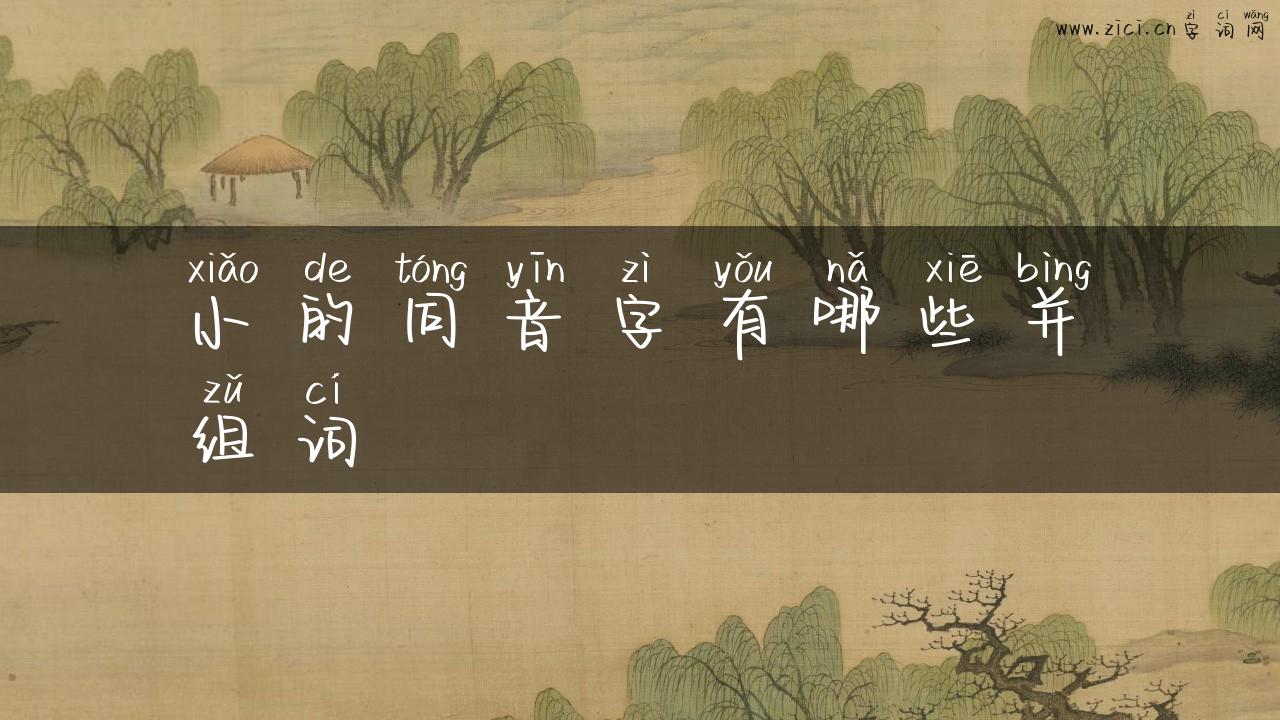 zì cí wǎng
www.zici.cn 字词网
xiǎo de tóng yīn zì yǒu nǎ xiē bìng
小的同音字有哪些并
zǔ cí
组词